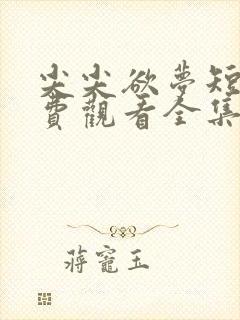 尖尖欲夢短
費觀看全集
蔣寵玉